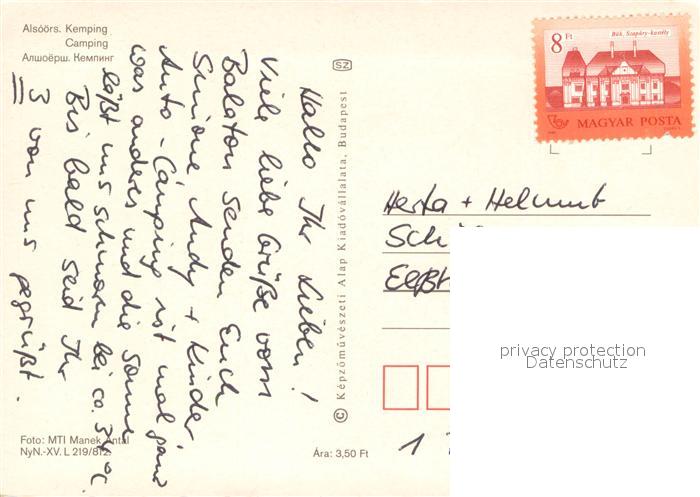 Alsóörs. Kemping
Camping
Алшоёрш. Кемпинг
Hallo Ihr Lieben!
Viele liebe Grüße vom
Balaton senden Euch
Simone, Andy + Kinder
Auto-Camping ist mal ganz
was anderes und die Sonne
läßt uns schmoren bei ca. 34°C.
Bis bald seid Ihr
3 von uns gegrüßt.
Foto: MTI Manek Antal
NyN.-XV. L 219/812.
SZ
© Képzőművészeti Alap Kiadóvállalata, Budapest
Ára: 3,50 Ft
8 Ft
Bük. Szapáry-kastély
MAGYAR POSTA
Herta + Helmut
Sch
1
privacy protection
Datenschutz